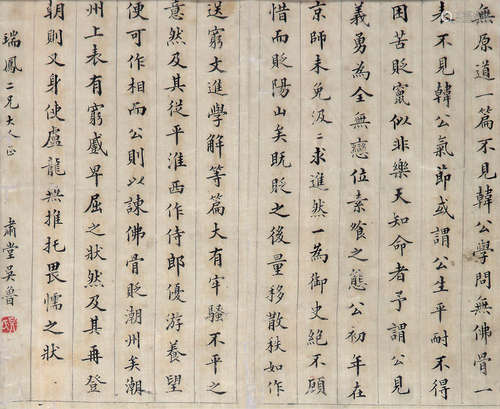 無原道一篇不見韓公學問無佛骨一
表不見韓公氣節或謂公生平耐不得
困苦貶竄似非樂天知命者予謂公見
義勇為全無戀位素飧之態公初年在
京師未免汲汲求進然一為御史絕不顧
惜而貶陽山矣既貶之後量移散秩如作
送窮文進學解等篇大有牢騷不平之
意然及其從平淮西作侍郎優游養望
便可作相而公則以諫佛骨貶潮州矣潮
州上表有窮慼卑屈之狀然及其再登
朝則又身使盧龍無推托畏懦之狀
瑞鳳二兄大人正
肅堂吳魯